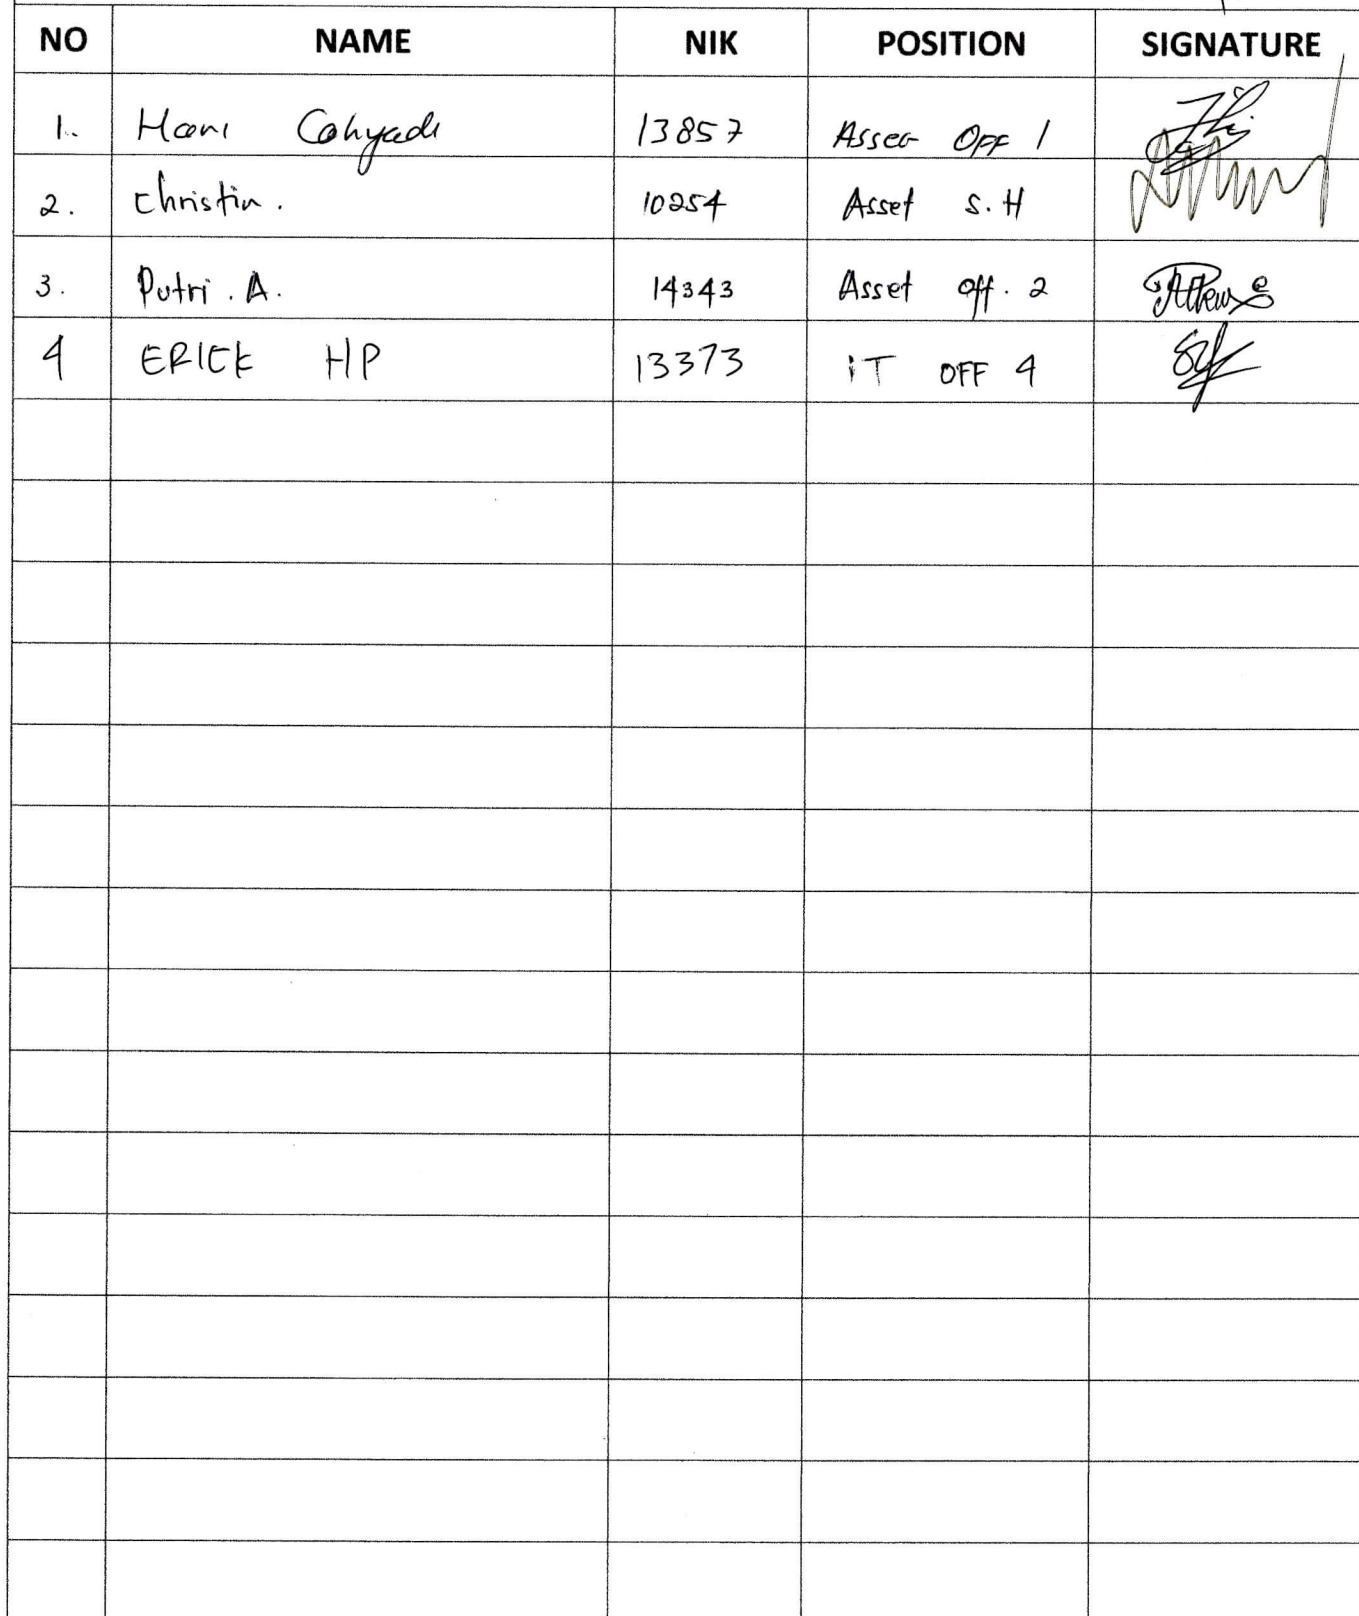 NO NAME NIK POSITION SIGNATURE
1. Hani Cahyadi 13857 Asset Off 1
2. Christin. 10254 Asset S.H
3. Putri. A. 14343 Asset Off. 2
4 ERICK HP 13373 iT OFF 4